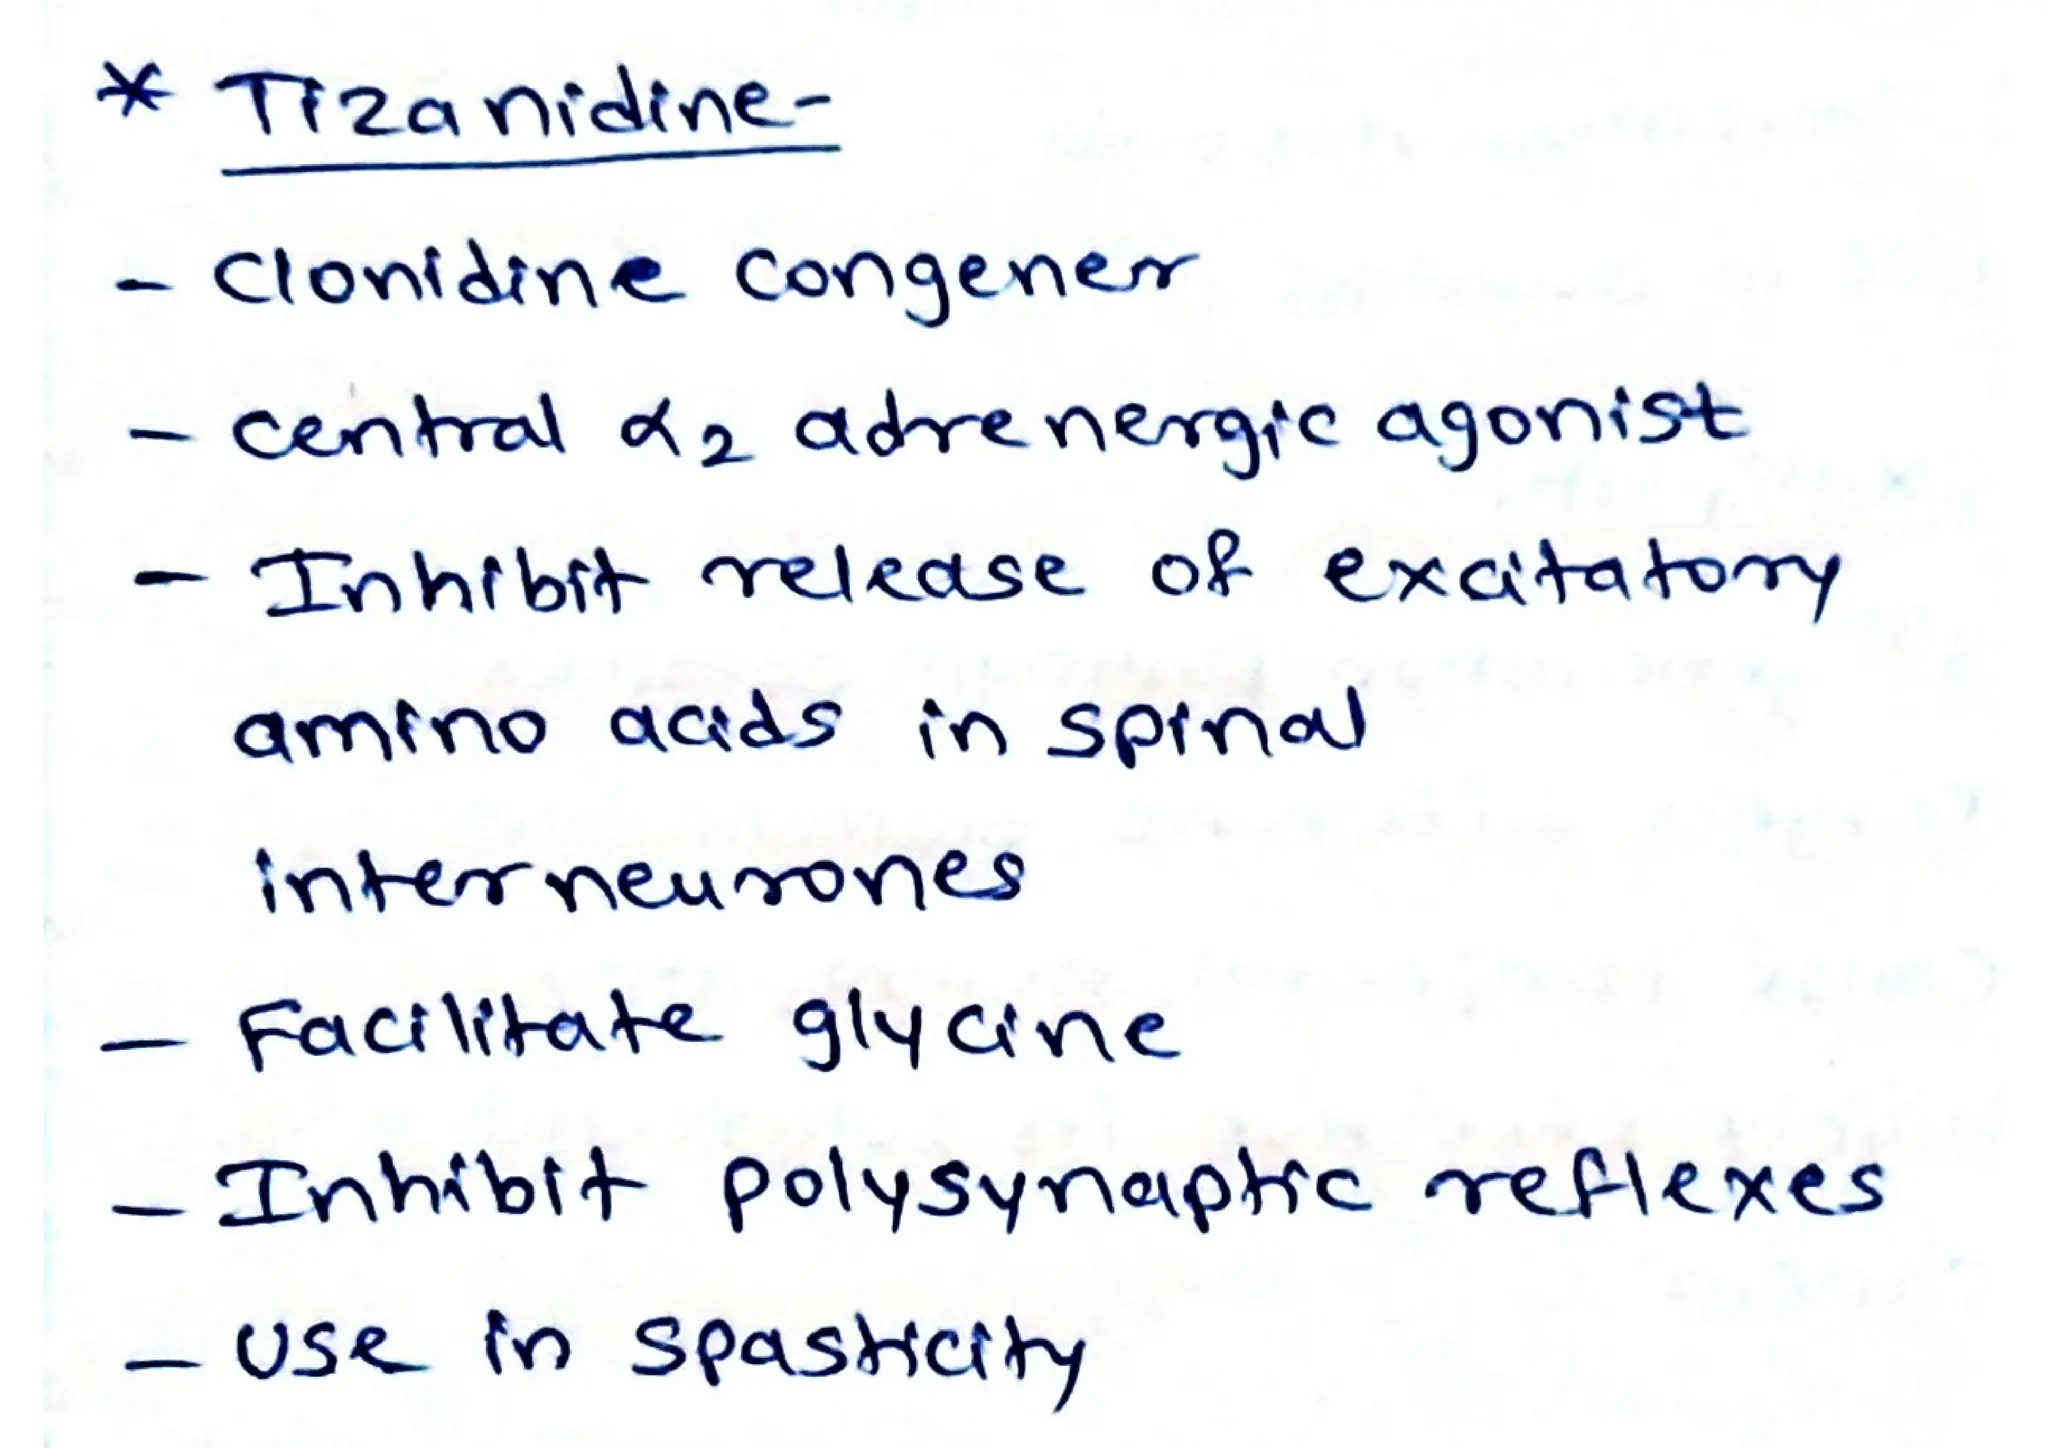 * Tizanidine-
- Clonidine congener
- central α2 adrenergic agonist
- Inhibit release of excitatory
amino acids in spinal
interneurones
- Facilitate glycine
- Inhibit polysynaptic reflexes
- Use in spasticity